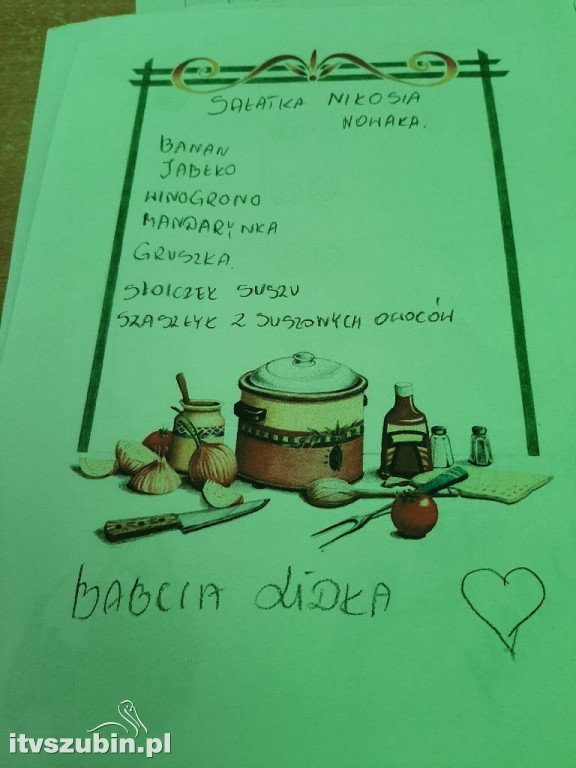 SAŁATKA NIKOSIA
NOWAKA.
BANAN
JABŁKO
WINOGRONO
MANDARYNKA
GRUSZKA.
SŁOICZEK SUSZU
SZASZŁYK Z SUSZONYCH OWOCÓW
BABCIA LIDKA
itvszubin.pl